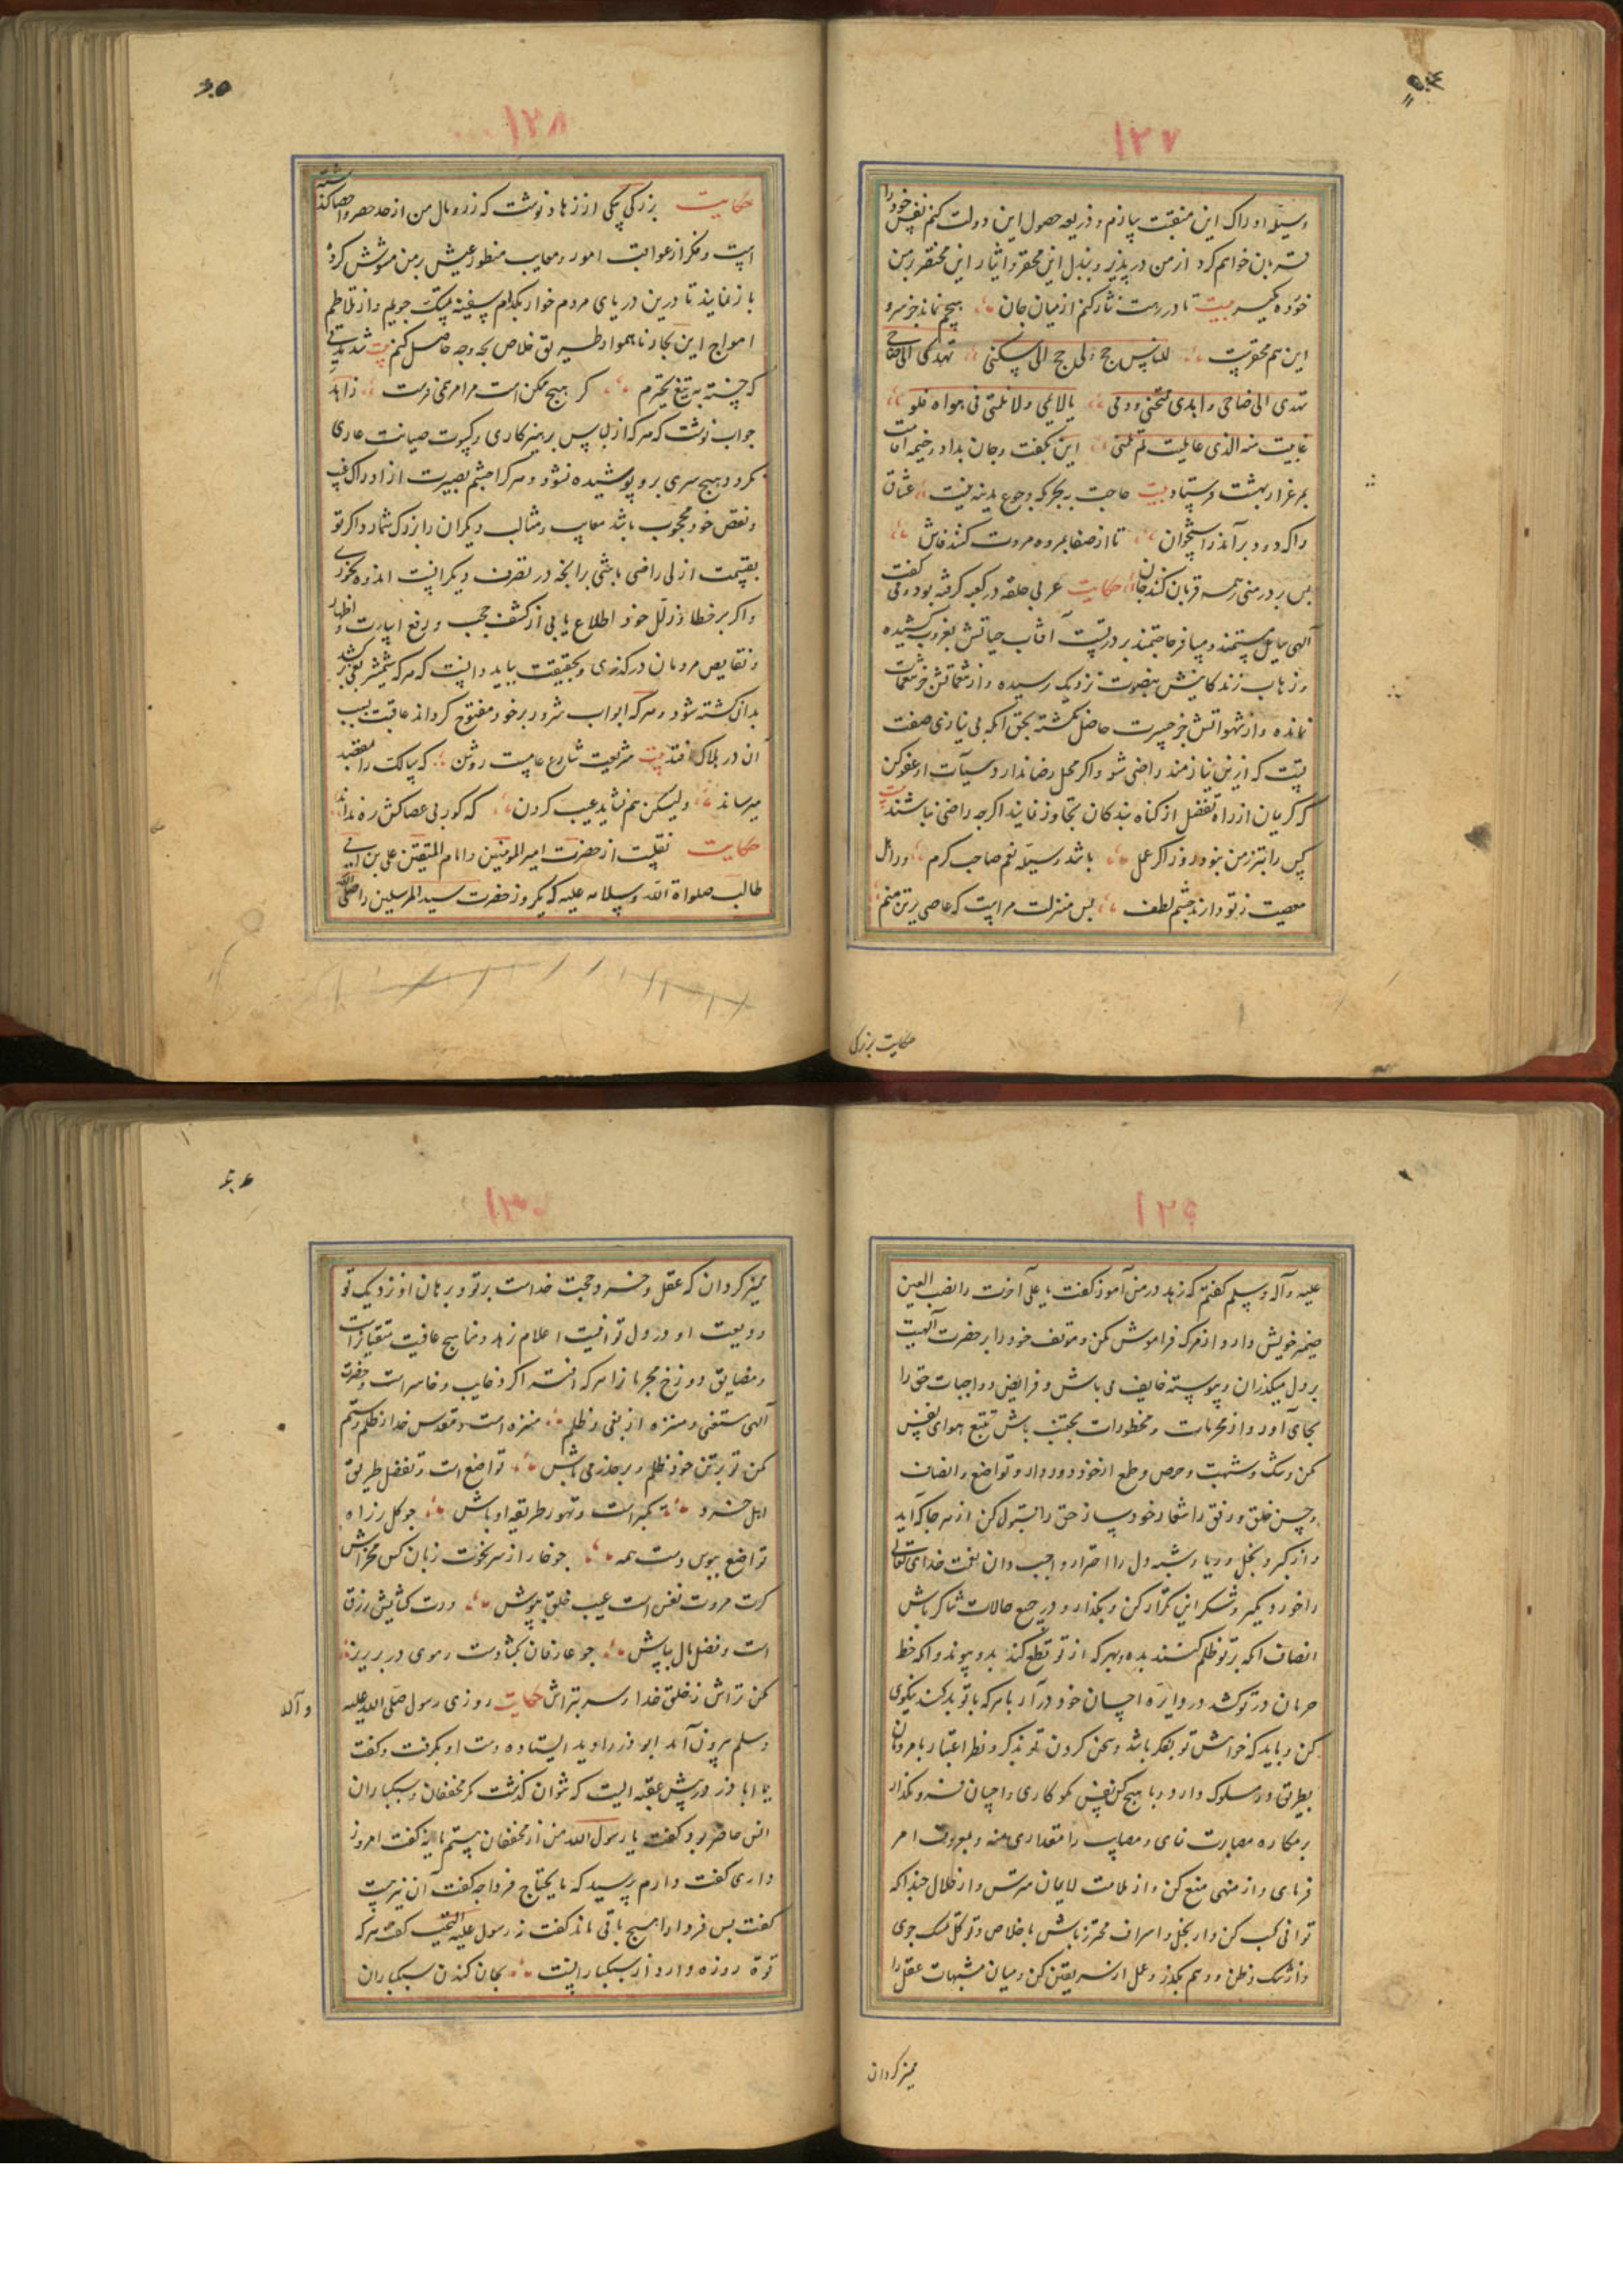 ۱۲۷
وسیله ادراک این منقبت سازم و ذریعه حصول این دولت کنم نفس خود را
قربان خواهم کرد از من در پذیر و ببذل این محقر و ایثار این مختصر بر من
خورده مگیر بیت تا در رهت نثار کنم از میان جان هیچم نماند جز سر و
این هم محقرست للناس حج ولی حج الی سکنی تهدی الاضاحی
تهدی الاضاحی و اهدی مهجتی و دمی یا لائمی لا تلمنی فی هواه فلو
عاینت منه الذی عاینت لم تلمنی این بگفت و جان بداد و خیمه اقامت
بمرغزار بهشت فرستاد بیت حاجت بحجر که رجوع مدینه نیست عشاق
را که درد برآمد ز استخوان تا از صفا بمروه مروت کنند فاش
پس بر در منی همه قربان کنند جان حکایت عربی حلقه در کعبه گرفته بود و می گفت
الهی سایل مستمند و مسافر حاجتمند بر در تست آفتاب حیاتش بغروب کشیده
و ذهاب زندگانیش نزدیک رسیده و از
نمانده و از شهواتش جز حسرت حاصل نگشته بحق آنکه بی نیازی صفت
تست که ازین نیازمند راضی شو و اگر محل رضا ندارد سیآت او عفو کن
که کریمان از راه تفضل از گناه بندگان تجاوز نمایند اگرچه راضی نباشند بیت
کس را بتر ز من نبود روز اگر عمل باشد وسیله نعم صاحب کرم ور اهل
معصیت ز تو دارند چشم لطف بس منزلت مراست که عاصی ترین منم
حکایت بزرکی
۱۲۸
حکایت بزرکی بیکی از زهاد نوشت که زر و مال من از حد حصر و احصا گذشته
است و فکر از عواقب امور و معایب منظور عیش بر من مشوش کرده
باز نمایند تا درین دریای مردم خوار بکدام سفینه تمسک جویم و از تلاطم
امواج این بحار ناهموار طریق خلاص بچه وجه حاصل کنم بیت شد مدتی
که خسته به تیغ تحیرم گر هیچ ممکن است مرا مرهمی فرست زاهد
جواب نوشت که هر که از لباس پرهیزکاری و کسوت صیانت عاری
گردد هیچ سری برو پوشیده نشود و هر کرا چشم بصیرت از ادراک عیب
و نقص خود محجوب باشد معایب و مثالب دیگران را بزرگ شمارد و اگر تو
بقسمت ازلی راضی باشی بر آنچه در تصرف دیگرانست اندوه نخوری
و اگر بر خطا و زلل خود اطلاع یابی از کشف حجب و رفع استار و اظهار
و نقایص مردمان درگذری و بحقیقت بباید دانست که هر که شمشیر بغی برکشد
بدان کشته شود و هر که ابواب شرور بر خود مفتوح گرداند عاقبت بسبب
آن در هلاک افتد بیت شریعت شارع عامست روشن که سالک را بمقصد
میرساند ولیکن هم نشاید عیب کردن که کور بی عصا کش ره نداند
حکایت نقلست از حضرت امیر المومنین و امام المتقین علی بن ابی
طالب صلواة الله و سلامه علیه که یکروز حضرت سید المرسلین را صلی الله
۱۲۹
علیه و آله و سلم گفتم که زهد در من آموز گفت یا علی آخرت را نصب العین
ضمیر خویش دار و از مرگ فراموش مکن و موقف خود را بر حضرت آلهیت
بر دل میگذران و پیوسته خایف می باش و فرایض و واجبات حق را
بجای آور و از محرمات و محظورات مجتنب باش تتبع هوای نفس
مکن و شک و شبهت و حرص و طمع از خود دور دار و تواضع و انصاف
و حسن خلق و رفق را شعار خود ساز حق را قبول کن از هر جا که آید
و از کبر و بخل و ریا و شبه دل را احتراز واجب دان نعمت خدای تعالی
را خورد مگیر و شکر این تکرار کن و بگذار و در جمیع حالات شاکر باش
انصاف آنکه بر تو ظلم کند بده و بهر که از تو قطع کند بدو پیوند و آنکه خط
حرمان در تو کشد در دایره احسان خود در آر با هر که با تو بد کند نیکوی
کن و باید که خواهش تو بفکر باشد و سخن کردن تو بذکر و نظر اعتبار با مردمان
بطریق و سلوک دار و با هیچ کس نکوکاری و احسان فرو مگذار
بر مکاره مصابرت نمای و مصایب را مقداری منه و بمعروف امر
فرمای و از منهی منع کن و از ملامت لایمان مترس و از حلال چندانکه
توانی کسب کن و از بخل و اسراف محترز باش باخلاص و توکل تمسک جوی
و از شک و ظن و وهم بگذر و عمل از سر یقین کن و میان مشبهات عقل را
ممیز کردان
۱۳۰
ممیز گردان که عقل و خرد حجت خداست بر تو و برهان او نزدیک تو
ودیعت او در دل تو اینست اعلام زهد و مناهج عاقبت متقیانراست
و مضایق دوزخ مجرمانرا هر که افسر اگر خایب و خاسر است و حضرت
آلهی مستغنی و منزه از بغی و ظلم منزه است و مقدس خدا از ظلم و ستم
مکن تو بر تن خود ظلم و بر حذر می باش تواضع است و تفضل طریق
اهل خرد تکبر است و تهور طریقه اوباش چو گل ز راه
تواضع ببوس دست همه چو خار از سر نخوت زبان کس مخراش
گرت مروت نفس است عیب خلق بپوش ورت کشایش رزق
است و فضل مال بپاش چو عارفان بگشا دست و موی در بریز
مکن تراش ز خلق خدا و سر بتراش حکایت روزی رسول صلی الله علیه
و آله
و سلم بیرون آمد ابوذر را دید ایستاده دست او بگرفت و گفت
یا ابا ذر در پیش عقبه ایست که نتوان گذشت مگر مخففان و سبکباران
انس حاضر بود گفت یا رسول الله من از مخففان هستم یا نه گفت امروز
داری گفت دارم پرسید که ما یحتاج فردا چه گفت آن نیز هست
گفت پس فردا را هیچ باقی ماند گفت نه رسول علیه التحیه گفت هر که
قوة روزه دارد از سبکبارانست بجان کندن سبکباران